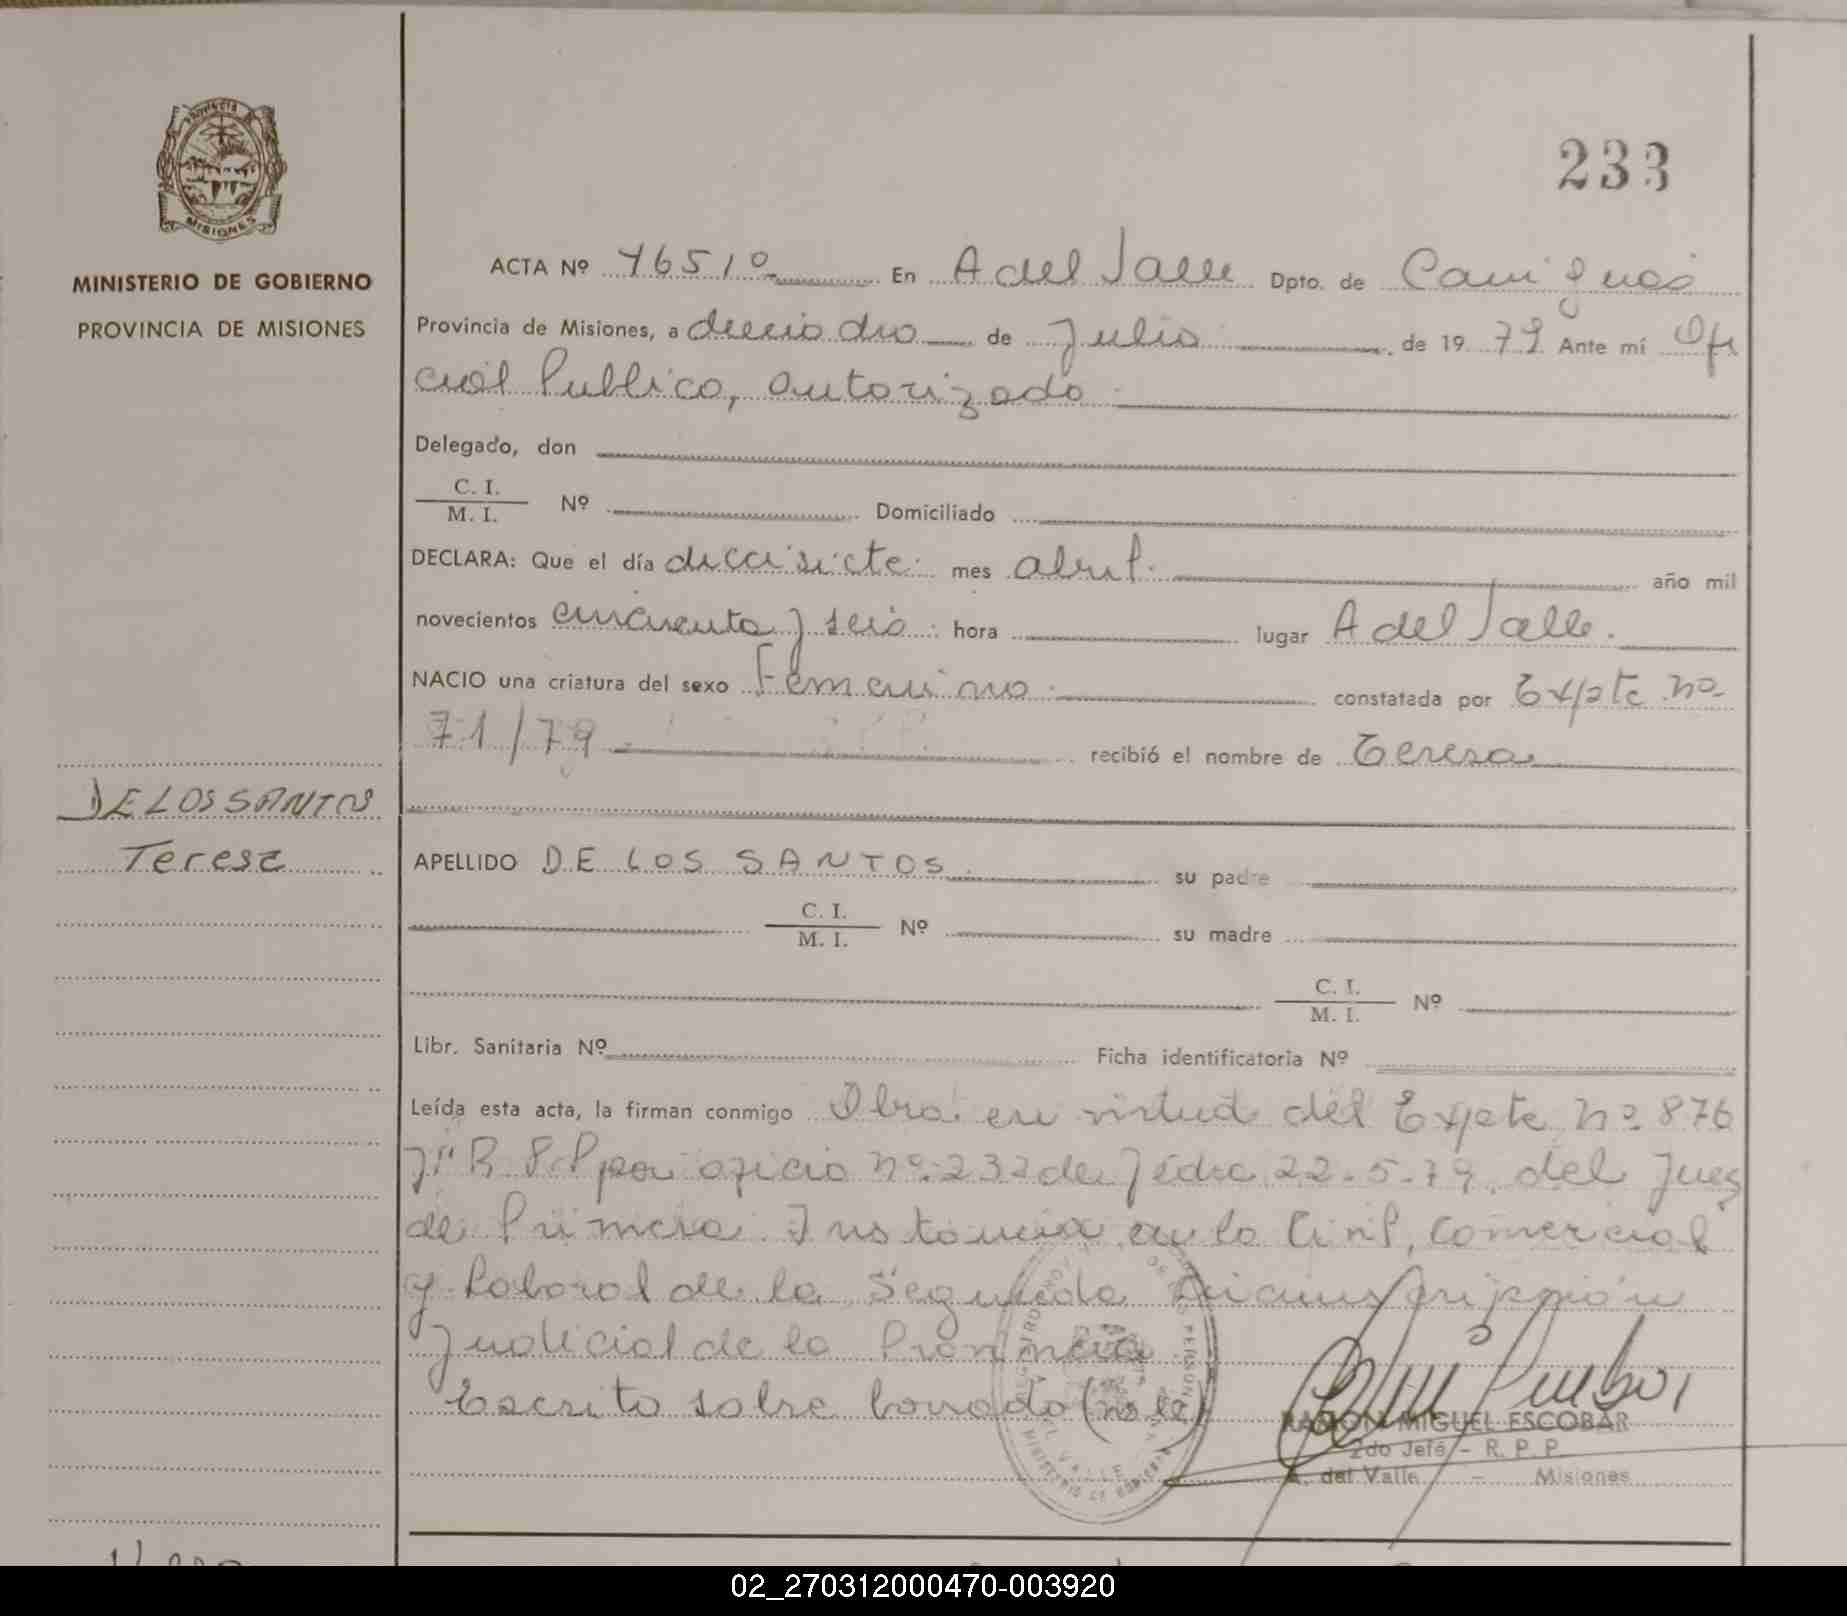 PROVINCIA
MISIONES
MINISTERIO DE GOBIERNO
PROVINCIA DE MISIONES
DE LOS SANTOS
Teresa
233
ACTA Nº 1651º En A del Valle Dpto. de Cainguas
Provincia de Misiones, a dieciocho de Julio de 1979 Ante mí Ofi
cial Publico, autorizado
Delegado, don
C. I.
M. I. Nº Domiciliado
DECLARA: Que el día diecisiete mes abril. año mil
novecientos cincuenta y seis hora lugar A del Valle.
NACIO una criatura del sexo Femenino constatada por Expte nº
71/79 recibió el nombre de Teresa
APELLIDO DE LOS SANTOS su padre
C. I.
M. I. Nº su madre
C. I.
M. I. Nº
Libr. Sanitaria Nº Ficha identificatoria Nº
Leída esta acta, la firman conmigo Obra en virtud del Expte nº 876
R.P.P por oficio nº 232 de fecha 22-5-79, del Juez
de Primera Instancia en lo Civil, Comercial
y Laboral de la Segunda Circunscripción
Judicial de la Provincia
Escrito sobre borrado (nº le)
RAMON MIGUEL ESCOBAR
2do Jefe - R. P. P.
A. del Valle - Misiones
02_270312000470-003920